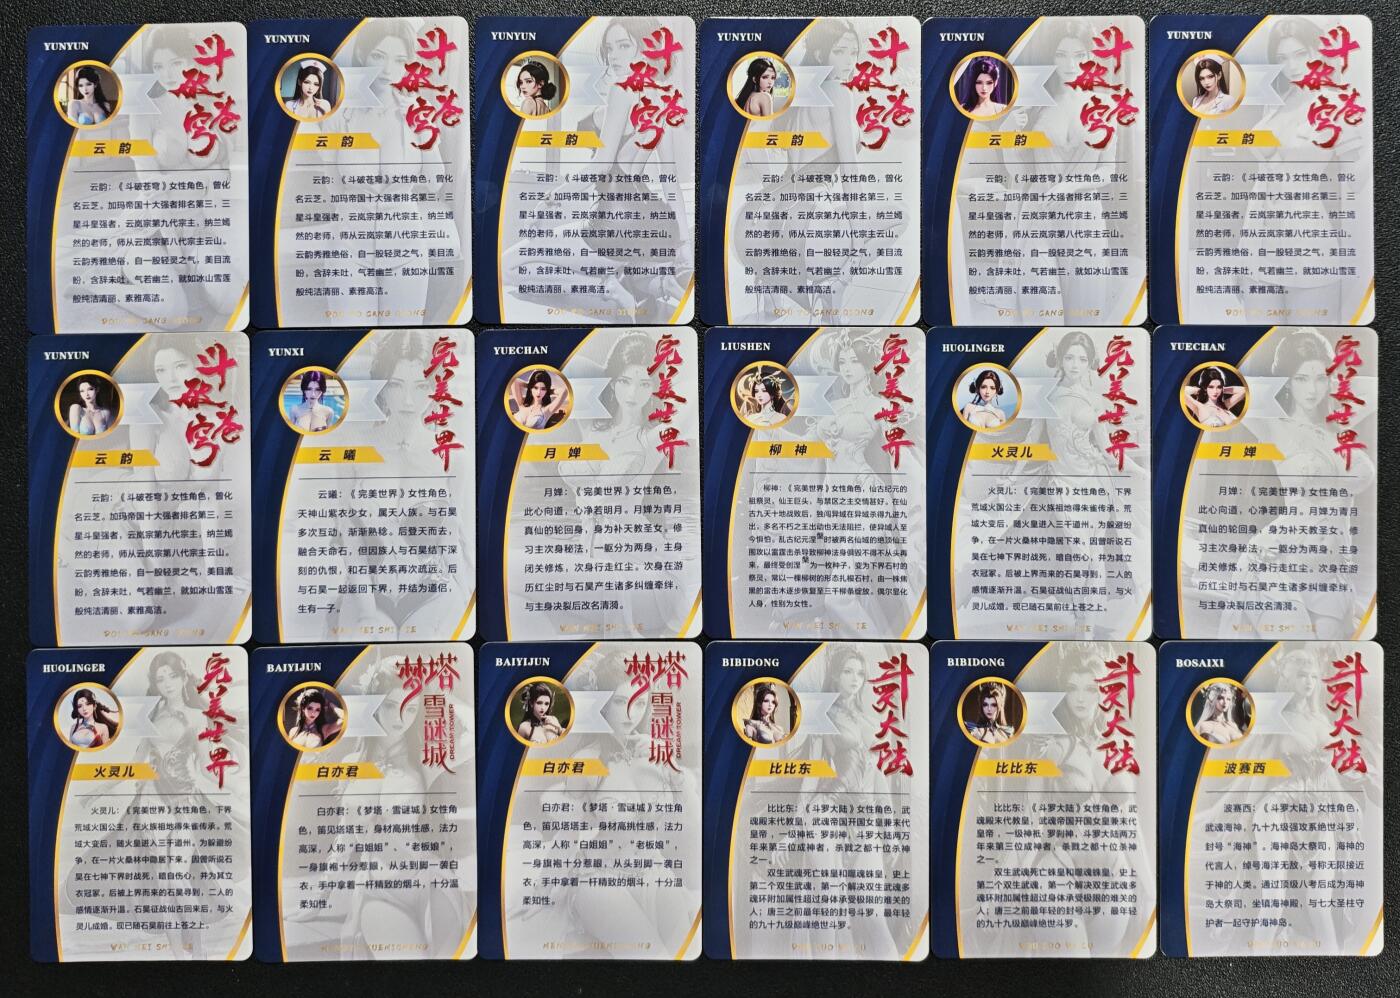 YUNYUN
斗破苍穹
云韵
云韵：《斗破苍穹》女性角色，曾化
名云芝。加玛帝国十大强者排名第三，三
星斗皇强者，云岚宗第九代宗主，纳兰嫣
然的老师，师从云岚宗第八代宗主云山。
云韵秀雅绝俗，自一股轻灵之气，美目流
盼，含辞未吐，气若幽兰，就如冰山雪莲
般纯洁清丽、素雅高洁。
YUNYUN
斗破苍穹
云韵
云韵：《斗破苍穹》女性角色，曾化
名云芝。加玛帝国十大强者排名第三，三
星斗皇强者，云岚宗第九代宗主，纳兰嫣
然的老师，师从云岚宗第八代宗主云山。
云韵秀雅绝俗，自一股轻灵之气，美目流
盼，含辞未吐，气若幽兰，就如冰山雪莲
般纯洁清丽、素雅高洁。
YUNYUN
斗破苍穹
云韵
云韵：《斗破苍穹》女性角色，曾化
名云芝。加玛帝国十大强者排名第三，三
星斗皇强者，云岚宗第九代宗主，纳兰嫣
然的老师，师从云岚宗第八代宗主云山。
云韵秀雅绝俗，自一股轻灵之气，美目流
盼，含辞未吐，气若幽兰，就如冰山雪莲
般纯洁清丽、素雅高洁。
YUNYUN
斗破苍穹
云韵
云韵：《斗破苍穹》女性角色，曾化
名云芝。加玛帝国十大强者排名第三，三
星斗皇强者，云岚宗第九代宗主，纳兰嫣
然的老师，师从云岚宗第八代宗主云山。
云韵秀雅绝俗，自一股轻灵之气，美目流
盼，含辞未吐，气若幽兰，就如冰山雪莲
般纯洁清丽、素雅高洁。
YUNYUN
斗破苍穹
云韵
云韵：《斗破苍穹》女性角色，曾化
名云芝。加玛帝国十大强者排名第三，三
星斗皇强者，云岚宗第九代宗主，纳兰嫣
然的老师，师从云岚宗第八代宗主云山。
云韵秀雅绝俗，自一股轻灵之气，美目流
盼，含辞未吐，气若幽兰，就如冰山雪莲
般纯洁清丽、素雅高洁。
YUNYUN
斗破苍穹
云韵
云韵：《斗破苍穹》女性角色，曾化
名云芝。加玛帝国十大强者排名第三，三
星斗皇强者，云岚宗第九代宗主，纳兰嫣
然的老师，师从云岚宗第八代宗主云山。
云韵秀雅绝俗，自一股轻灵之气，美目流
盼，含辞未吐，气若幽兰，就如冰山雪莲
般纯洁清丽、素雅高洁。
YUNYUN
斗破苍穹
云韵
云韵：《斗破苍穹》女性角色，曾化
名云芝。加玛帝国十大强者排名第三，三
星斗皇强者，云岚宗第九代宗主，纳兰嫣
然的老师，师从云岚宗第八代宗主云山。
云韵秀雅绝俗，自一股轻灵之气，美目流
盼，含辞未吐，气若幽兰，就如冰山雪莲
般纯洁清丽、素雅高洁。
YUNXI
完美世界
云曦
云曦：《完美世界》女性角色，
天神山紫衣少女，属天人族。与石昊
多次互动，渐渐熟稔。后登天而去，
融合天命石，但因族人与石昊结下深
刻的仇恨，和石昊关系再次疏远。后
与石昊一起返回下界，并结为道侣，
生有一子。
YUECHAN
完美世界
月婵
月婵：《完美世界》女性角色，
此心向道，心净若明月。月婵为青月
真仙的轮回身，身为补天教圣女。修
习主次身秘法，一躯分为两身，主身
闭关修炼，次身行走红尘。次身在游
历红尘时与石昊产生诸多纠缠牵绊，
与主身决裂后改名清漪。
LIUSHEN
完美世界
柳神
柳神：《完美世界》女性角色，仙古纪元的
祖祭灵，仙王巨头，与禁区之主交情甚好。在仙
古九天十地战败后，独闯异域在异域杀得九进九
出，多名不朽之王出动也无法阻拦，使异域人至
今惧怕。乱古纪元涅槃时被两名仙域的绝顶仙王
围攻以雷霆击杀导致柳神法身俱毁不得不从头再
来，最终受创涅槃为一枚种子，变为下界石村的
祭灵，常以一棵柳树的形态扎根石村，由一株焦
黑的雷击木逐步恢复至三千柳条绽放，偶尔显化
人身，性别为女性。
HUOLINGER
完美世界
火灵儿
火灵儿：《完美世界》女性角色，下界
荒域火国公主，在火族祖地得朱雀传承。荒
域大变后，随火皇进入三千道州。为躲避纷
争，在一片火桑林中隐居下来。因曾听说石
昊在七神下界时战死，暗自伤心，并为其立
衣冠冢。后被上界而来的石昊寻到，二人的
感情逐渐升温。石昊征战仙古回来后，与火
灵儿成婚。现已随石昊前往上苍之上。
YUECHAN
完美世界
月婵
月婵：《完美世界》女性角色，
此心向道，心净若明月。月婵为青月
真仙的轮回身，身为补天教圣女。修
习主次身秘法，一躯分为两身，主身
闭关修炼，次身行走红尘。次身在游
历红尘时与石昊产生诸多纠缠牵绊，
与主身决裂后改名清漪。
HUOLINGER
完美世界
火灵儿
火灵儿：《完美世界》女性角色，下界
荒域火国公主，在火族祖地得朱雀传承。荒
域大变后，随火皇进入三千道州。为躲避纷
争，在一片火桑林中隐居下来。因曾听说石
昊在七神下界时战死，暗自伤心，并为其立
衣冠冢。后被上界而来的石昊寻到，二人的
感情逐渐升温。石昊征战仙古回来后，与火
灵儿成婚。现已随石昊前往上苍之上。
BAIYIJUN
梦塔
雪谜城
DREAM TOWER
白亦君
白亦君：《梦塔·雪谜城》女性角
色，笛见塔塔主，身材高挑性感，法力
高深，人称“白姐姐”、“老板娘”，
一身旗袍十分惹眼，从头到脚一袭白
衣，手中拿着一杆精致的烟斗，十分温
柔知性。
BAIYIJUN
梦塔
雪谜城
DREAM TOWER
白亦君
白亦君：《梦塔·雪谜城》女性角
色，笛见塔塔主，身材高挑性感，法力
高深，人称“白姐姐”、“老板娘”，
一身旗袍十分惹眼，从头到脚一袭白
衣，手中拿着一杆精致的烟斗，十分温
柔知性。
BIBIDONG
斗罗大陆
比比东
比比东：《斗罗大陆》女性角色，武
魂殿末代教皇，武魂帝国开国女皇兼末代
皇帝，一级神祇·罗刹神，斗罗大陆两万
年来第三位成神者，杀戮之都十位杀神
之一。
双生武魂死亡蛛皇和噬魂蛛皇，史上
第二个双生武魂，第一个解决双生武魂多
魂环附加属性超过身体承受极限的难关的
人；唐三之前最年轻的封号斗罗，最年轻
的九十九级巅峰绝世斗罗。
BIBIDONG
斗罗大陆
比比东
比比东：《斗罗大陆》女性角色，武
魂殿末代教皇，武魂帝国开国女皇兼末代
皇帝，一级神祇·罗刹神，斗罗大陆两万
年来第三位成神者，杀戮之都十位杀神
之一。
双生武魂死亡蛛皇和噬魂蛛皇，史上
第二个双生武魂，第一个解决双生武魂多
魂环附加属性超过身体承受极限的难关的
人；唐三之前最年轻的封号斗罗，最年轻
的九十九级巅峰绝世斗罗。
BOSAIXI
斗罗大陆
波赛西
波赛西：《斗罗大陆》女性角色，
武魂海神，九十九级强攻系绝世斗罗，
封号“海神”。海神岛大祭司，海神的
代言人，绰号海洋无敌，号称无限接近
于神的人类。通过顶级八考后成为海神
岛大祭司，坐镇海神殿，与七大圣柱守
护者一起守护海神岛。